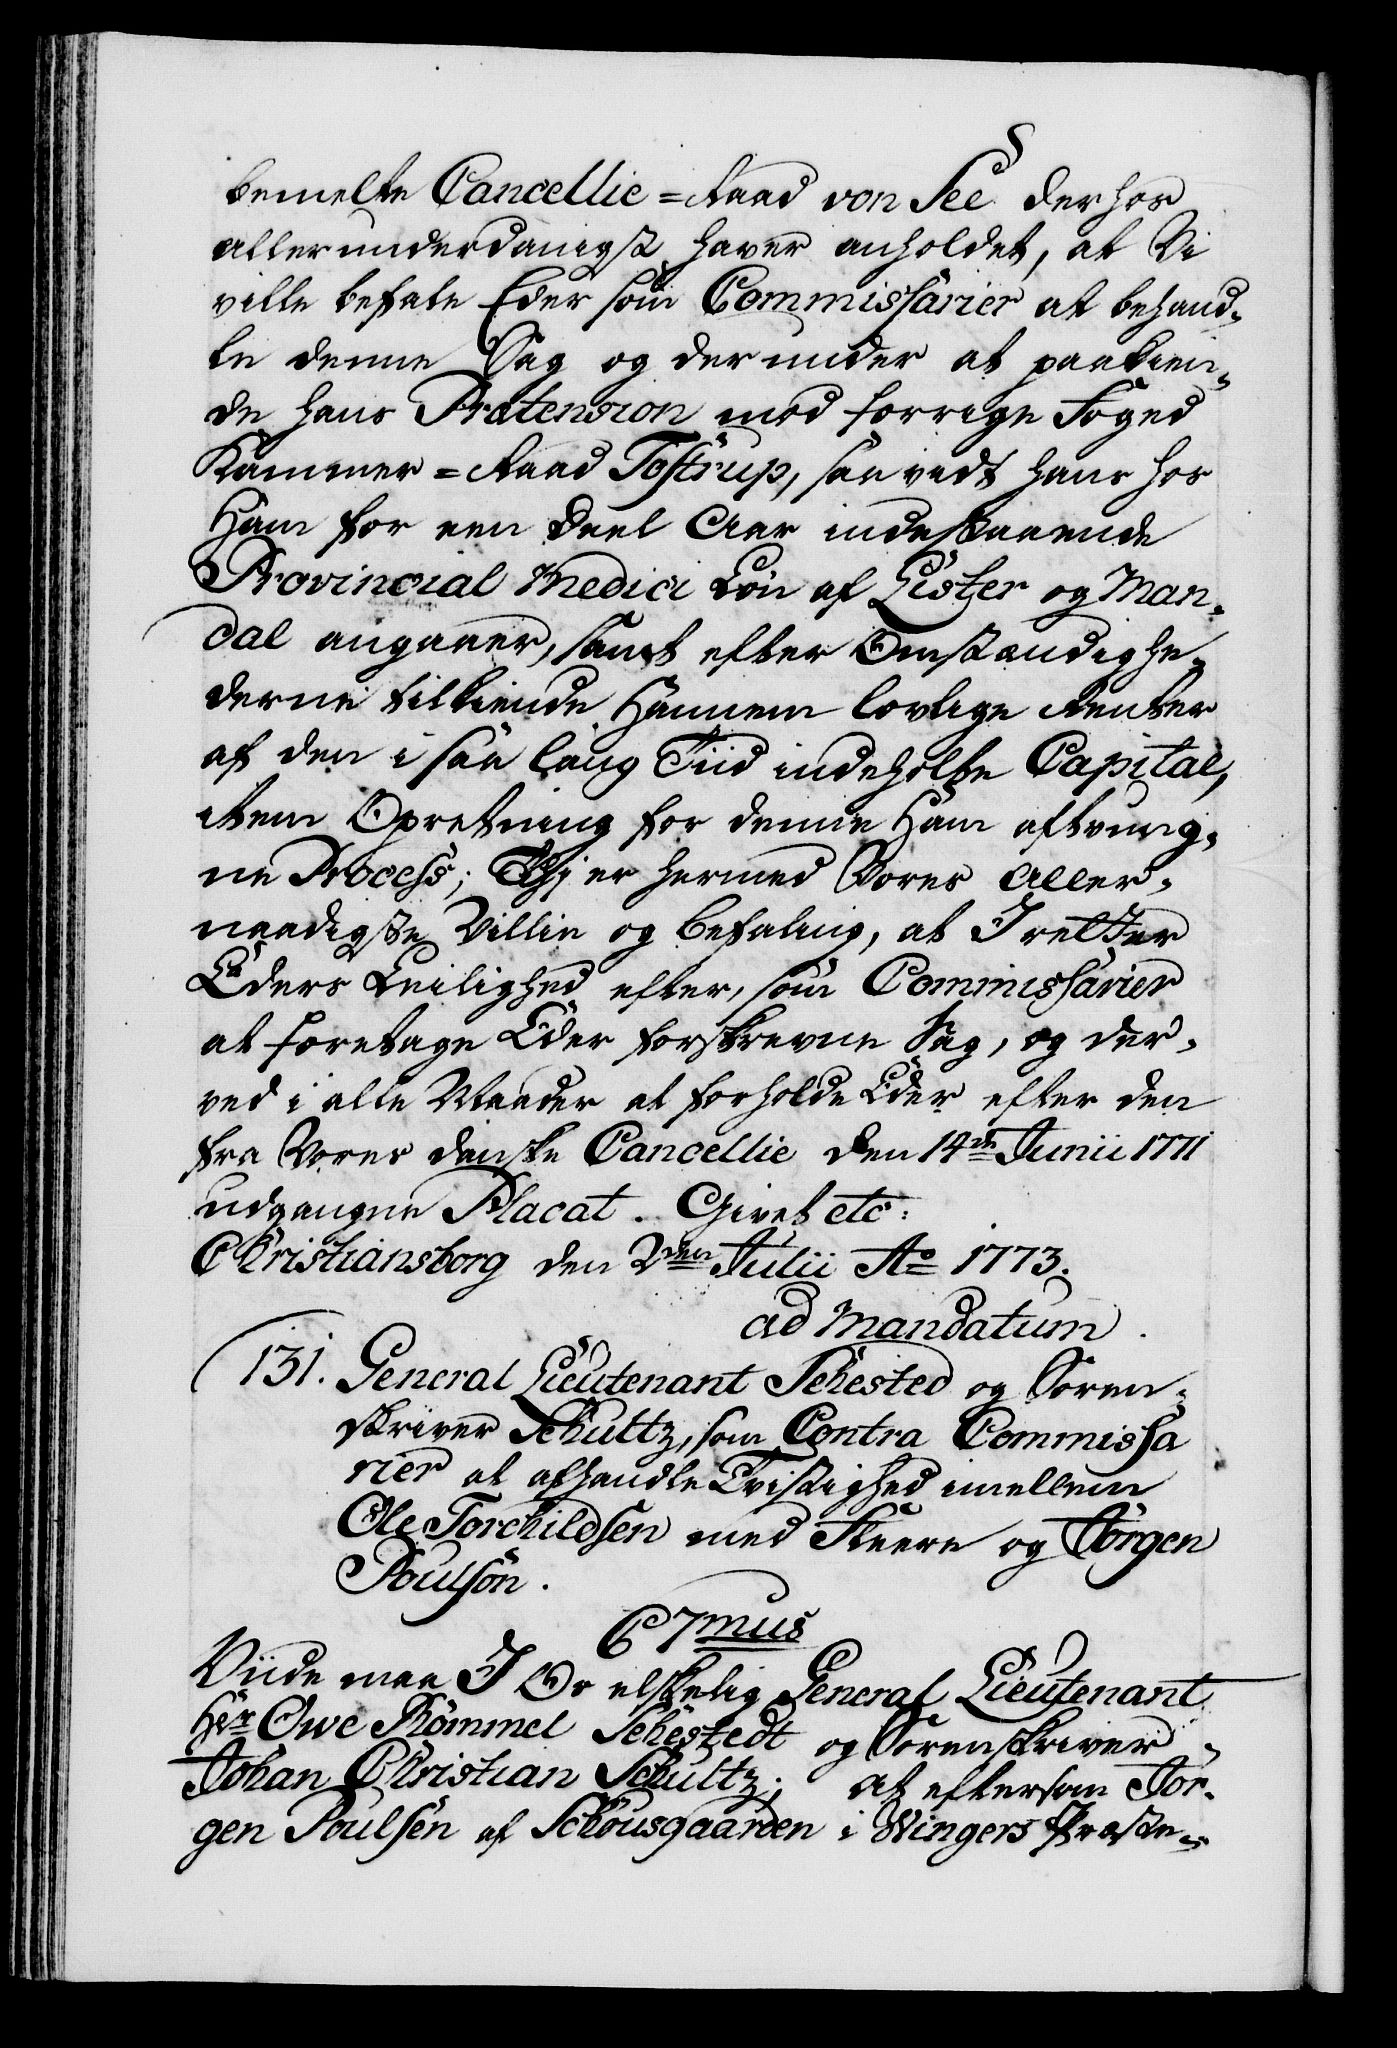 bemelte Cancellie=Raad von See derhos
allerunderdanigst haver anholdet, at Vi
ville befale Eder som Commissarier at behand-
le denne Sag og derunder at paakien-
de hans Prætension mod forrige Foged
Kammer=Raad Tostrup, saavidt hans hos
Ham for een Deel Aar indestaaende
Provincial Medici Løn af Lister og Man-
dal angaaer, samt efter Omstændighe-
derne tilkiende Hannem lovlige Renter
af den i saa lang Tiid indeholte Capital,
item Opretning for denne Ham aftvung-
ne Process; Thi er hermed Vores Aller-
naadigste Villie og befaling, at I retter
Eders Leilighed efter, som Commissarier
at foretage Eder forskrevne Sag, og der-
ved i alle Maader at forholde Eder efter den
fra Vores danske Cancellie den 14de Junii 1771
udgangne Placat. Givet etc:
Christiansborg den 2den Julii Ao 1773.
ad Mandatum.
131. General Lieutenant Sehested og Soren-
skriver Schultz, som Contra Commissa
rier at afhandle Tvistighed imellem
Ole Torchildsen med Fleere og Jørgen
Poulsøn.
C 7mus
Viide maa I Os elskelig General Lieutenant
Hr Owe Rømmel Sehestedt og Sorenskriver
Johan Christian Schultz; at eftersom Jør-
gen Poulsen af Schousgaarden i Wingers Præste-